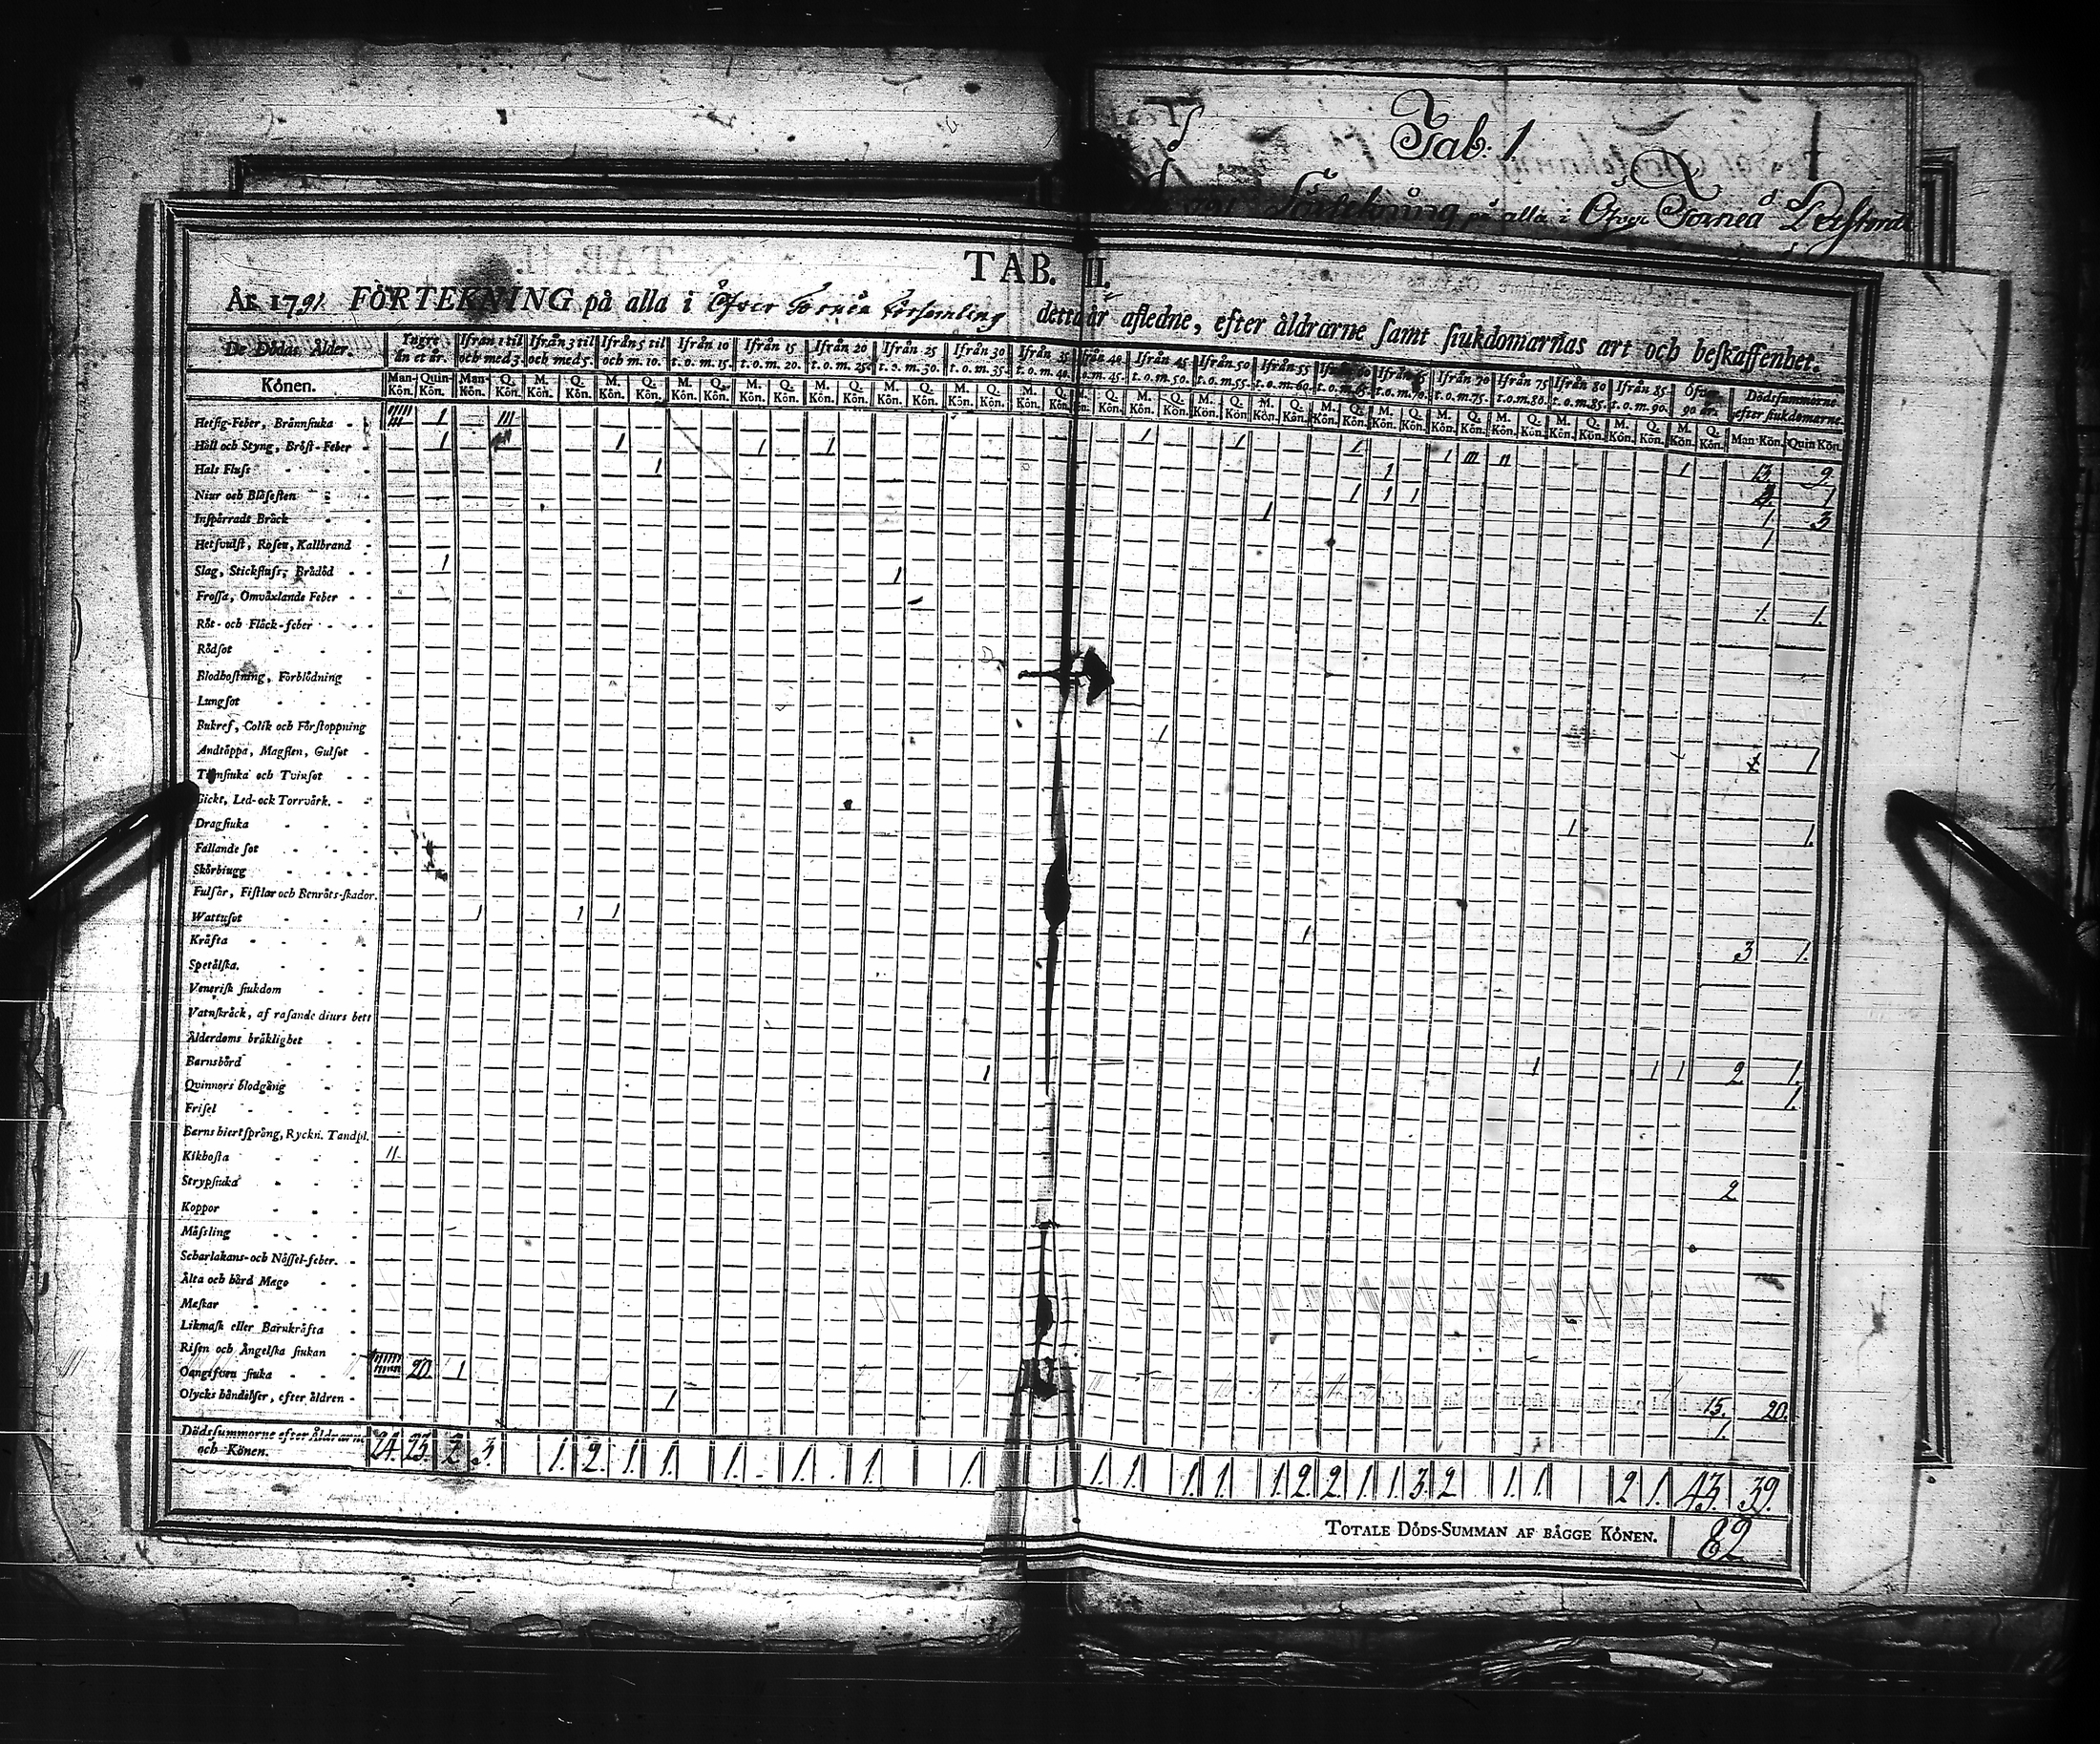 Tab: 1
1791 Förtekning på alla i Öfver Torneå
TAB. II.
ÅR 1791 FÖRTEKNING på alla i Öfver Torneå Församling detta år afledne, efter åldrarne samt siukdomarnas art och beskaffenhet.
De Dödas Ålder. Yngre än et år. Ifrån 1 til och med 3. Ifrån 3 til och med 5. Ifrån 5 til och m. 10. Ifrån 10 t. o. m. 15. Ifrån 15 t. o. m. 20. Ifrån 20 t. o. m. 25. Ifrån 25 t. o. m. 30. Ifrån 30 t. o. m. 35. Ifrån 35 t. o. m. 40. Ifrån 40 t. o. m. 45. Ifrån 45 t. o. m. 50. Ifrån 50 t. o. m. 55. Ifrån 55 t. o. m. 60. Ifrån 60 t. o. m. 65. Ifrån 65 t. o. m. 70. Ifrån 70 t. o. m. 75. Ifrån 75 t. o. m. 80. Ifrån 80 t. o. m. 85. Ifrån 85 t. o. m. 90. Öfver 90 år. Dödssummorne efter siukdomarne.
Könen. Man-Kön. Quin-Kön. Man-Kön. Q. Kön. M. Kön. Q. Kön. M. Kön. Q. Kön. M. Kön. Q. Kön. M. Kön. Q. Kön. M. Kön. Q. Kön. M. Kön. Q. Kön. M. Kön. Q. Kön. M. Kön. Q. Kön. Man Kön. Quin Kön.
Hetsig-Feber, Brännsiuka 1 III
Håll och Styng, Bröst-Feber 1 1 1 1 1 1 1 1 III II 1 13. 9
Hals Fluss 1 1 1
Niur och Blåsesten 1 1 1 1. 3
Inspärradt Bråck 1 1
Hetsvulst, Rosen, Kallbrand
Slag, Stickfluss, Brådöd 1 1 1. 1.
Frossa, Omväxlande Feber
Röt- och Fläck-feber
Rödsot
Blodhostning, Förblödning
Lungsot
Bukref, Colik och Förstoppning
Andtäppa, Magsten, Gulsot 1 1
Tärnsiuka och Tvinsot
Gickt, Led-ock Torrvärk.
Dragsiuka 1 1.
Fallande sot
Skörbiugg
Fulsår, Fistlar och Benröts-skador.
Wattusot 1 1 1 1 3 1.
Kräfta
Spetälska.
Venerisk siukdom
Vatnskräck, af rasande diurs bett
Ålderdoms bräklighet 1 1 1 2 1.
Barnsbörd 1 1.
Quinnors blodgång
Frisel
Barns hiertsprång, Ryckn. Tandpl.
Kikhosta II. 2
Strypsiuka
Koppor
Mässling
Scharlakans-och Nässel-feber.
Älta och hård Mage
Maskar
Likmask eller Barnkräfta
Risen och Ängelska siukan
Oangifven siuka 20. 1 15. 20.
Olycks händelser, efter åldren 1 1.
Dödssummorne efter Åldrarne och Könen. 24. 23. 2 3 1. 2. 1. 1. 1. 1. 1. 1. 1. 1. 1. 1. 1. 2. 2. 1 1. 3. 2 1. 1. 2 1. 43. 39.
TOTALE DÖDS-SUMMAN AF BÅGGE KÖNEN. 82